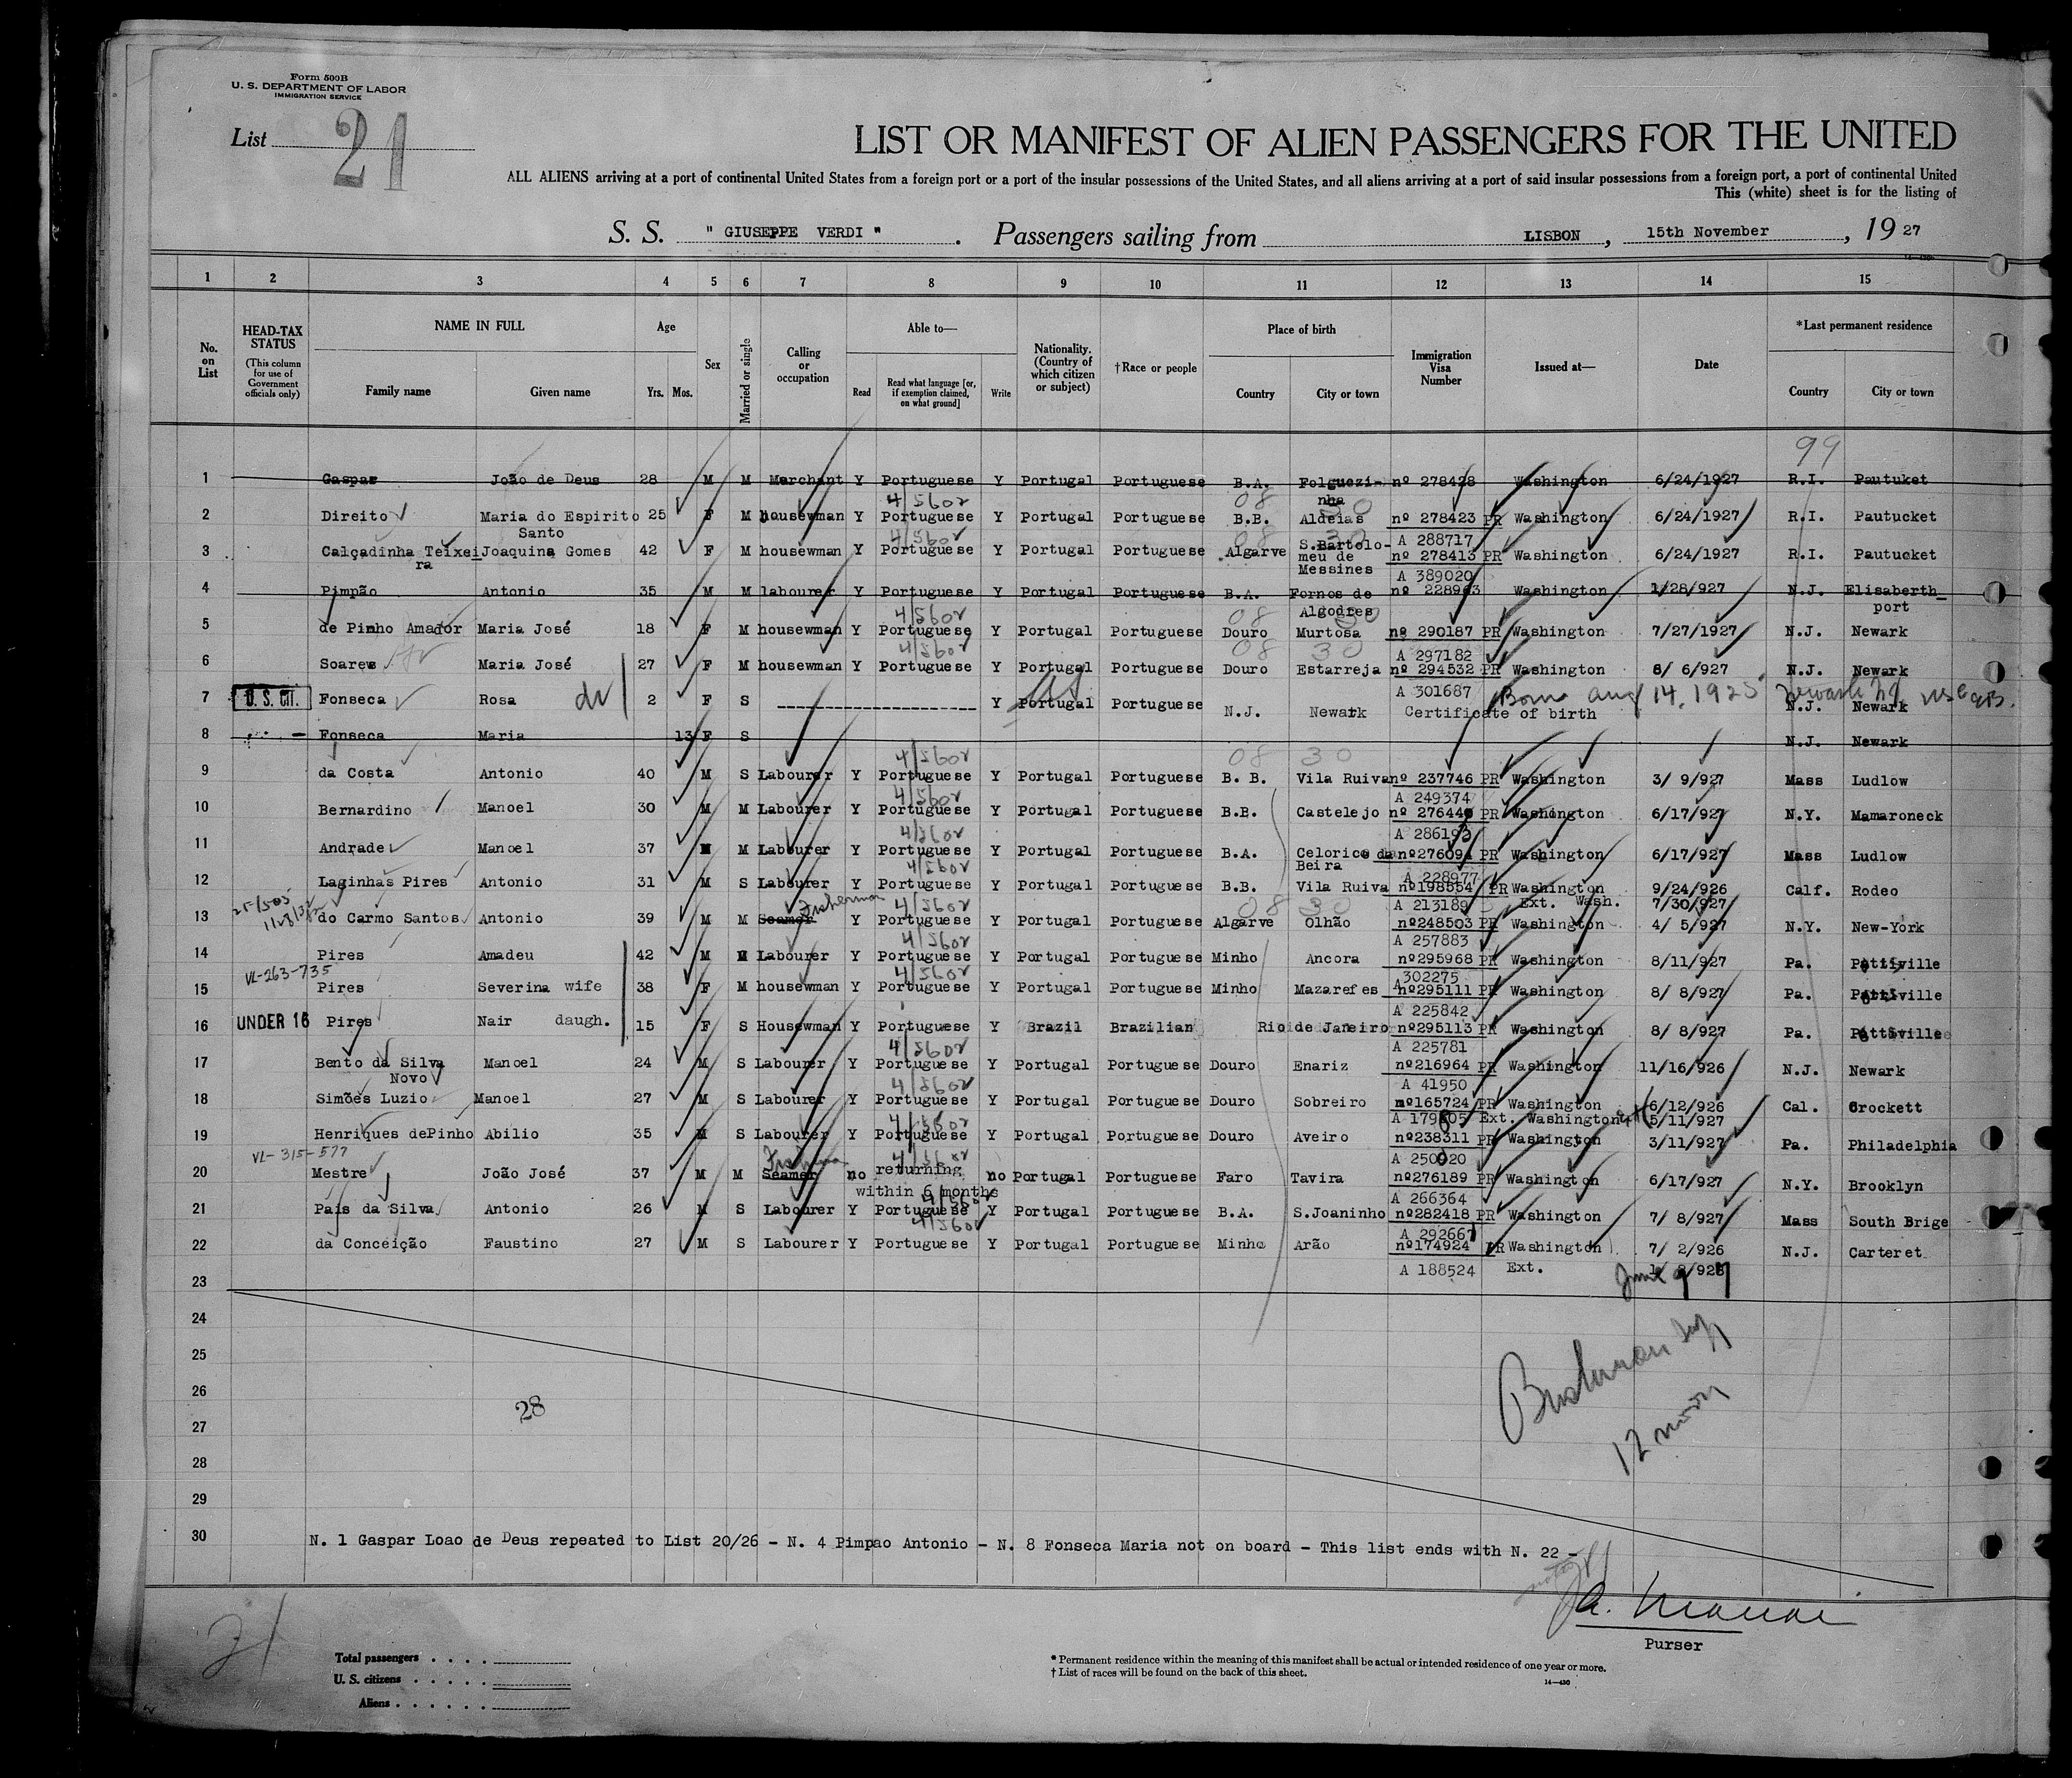 Form 500B
U. S. DEPARTMENT OF LABOR
IMMIGRATION SERVICE
List 21
LIST OR MANIFEST OF ALIEN PASSENGERS FOR THE UNITED
ALL ALIENS arriving at a port of continental United States from a foreign port or a port of the insular possessions of the United States, and all aliens arriving at a port of said insular possessions from a foreign port, a port of continental United
This (white) sheet is for the listing of
S. S. " GIUSEPPE VERDI " . Passengers sailing from LISBON , 15th November , 19 27
1 2 3 4 5 6 7 8 9 10 11 12 13 14 15
No. on List
HEAD-TAX STATUS
(This column for use of Government officials only)
NAME IN FULL
Family name Given name
Age
Yrs. Mos.
Sex
Married or single
Calling or occupation
Able to—
Read
Read what language [or, if exemption claimed, on what ground]
Write
Nationality. (Country of which citizen or subject)
†Race or people
Place of birth
Country City or town
Immigration Visa Number
Issued at—
Date
*Last permanent residence
Country City or town
99
1 Gaspar João de Deus 28 M M Marchant Y Portuguese Y Portugal Portuguese B.A. Folguezi-nha nº 278428 Washington 6/24/1927 R.I. Pautuket
2 Direito Maria do Espirito Santo 25 F M housewman Y Portuguese Y Portugal Portuguese B.B. Aldeias nº 278423 PR Washington 6/24/1927 R.I. Pautucket
A 288717
3 Calçadinha Teixeira Joaquina Gomes 42 F M housewman Y Portuguese Y Portugal Portuguese Algarve S.Bartolo-meu de Messines nº 278413 PR Washington 6/24/1927 R.I. Pautucket
A 389020
4 Pimpão Antonio 35 M M labourer Y Portuguese Y Portugal Portuguese B.A. Fornos de Algodres nº 228963 Washington 1/28/927 N.J. Elisaberth_port
5 de Pinho Amador Maria José 18 F M housewman Y Portuguese Y Portugal Portuguese Douro Murtosa nº 290187 PR Washington 7/27/1927 N.J. Newark
A 297182
6 Soares Maria José 27 F M housewman Y Portuguese Y Portugal Portuguese Douro Estarreja nº 294532 PR Washington 8/ 6/927 N.J. Newark
A 301687
7 U. S. CIT. Fonseca Rosa 2 F S Y Portugal Portuguese N.J. Newark Certificate of birth Born Aug 14, 1925 Newark N.J. N.J. Newark
8 Fonseca Maria 13 F S N.J. Newark
9 da Costa Antonio 40 M S Labourer Y Portuguese Y Portugal Portuguese B. B. Vila Ruiva nº 237746 PR Washington 3/ 9/927 Mass Ludlow
A 249374
10 Bernardino Manoel 30 M M Labourer Y Portuguese Y Portugal Portuguese B.B. Castelejo nº 276440 PR Washington 6/17/927 N.Y. Mamaroneck
A 286193
11 Andrade Manoel 37 M M Labourer Y Portuguese Y Portugal Portuguese B.A. Celorico da Beira nº276094 PR Washington 6/17/927 Mass Ludlow
A 228977
12 Laginhas Pires Antonio 31 M S Labourer Y Portuguese Y Portugal Portuguese B.B. Vila Ruiva nº198554 PR Washington 9/24/926 Calf. Rodeo
A 213189 Ext. Wash. 7/30/927
13 do Carmo Santos Antonio 39 M M Seamer Fisherman Y Portuguese Y Portugal Portuguese Algarve Olhão nº248503 PR Washington 4/ 5/927 N.Y. New-York
A 257883
14 Pires Amadeu 42 M M Labourer Y Portuguese Y Portugal Portuguese Minho Ancora nº295968 PR Washington 8/11/927 Pa. Pottsville
A 302275
VL-263-735
15 Pires Severina wife 38 F M housewman Y Portuguese Y Portugal Portuguese Minho Mazarefes nº295111 PR Washington 8/ 8/927 Pa. Pottsville
A 225842
16 UNDER 16 Pires Nair daugh. 15 F S Housewman Y Portuguese Y Brazil Brazilian Rio de Janeiro nº295113 PR Washington 8/ 8/927 Pa. Pottsville
A 225781
17 Bento da Silva Novo Manoel 24 M S Labourer Y Portuguese Y Portugal Portuguese Douro Enariz nº216964 PR Washington 11/16/926 N.J. Newark
A 41950
18 Simões Luzio Manoel 27 M S Labourer Y Portuguese Y Portugal Portuguese Douro Sobreiro nº165724 PR Washington 6/12/926 Cal. Crockett
A 179605 Ext. Washington 5/11/927
19 Henriques dePinho Abilio 35 M S Labourer Y Portuguese Y Portugal Portuguese Douro Aveiro nº238311 PR Washington 3/11/927 Pa. Philadelphia
A 250020
VL-315-577
20 Mestre João José 37 M M Seamer no returning within 6 months no Portugal Portuguese Faro Tavira nº276189 PR Washington 6/17/927 N.Y. Brooklyn
A 266364
21 Pais da Silva Antonio 26 M S Labourer Y Portuguese Y Portugal Portuguese B.A. S.Joaninho nº282418 PR Washington 7/ 8/927 Mass South Brige
A 292667
22 da Conceição Faustino 27 M S Labourer Y Portuguese Y Portugal Portuguese Minho Arão nº174924 PR Washington 7/ 2/926 N.J. Carteret
A 188524 Ext. June 9
23
24
25
26
27
28
28
29
30
12 noon
N. 1 Gaspar Loao de Deus repeated to List 20/26 - N. 4 Pimpao Antonio - N. 8 Fonseca Maria not on board - This list ends with N. 22 -
Purser
21
Total passengers
U. S. citizens
Aliens
* Permanent residence within the meaning of this manifest shall be actual or intended residence of one year or more.
† List of races will be found on the back of this sheet.
14—430